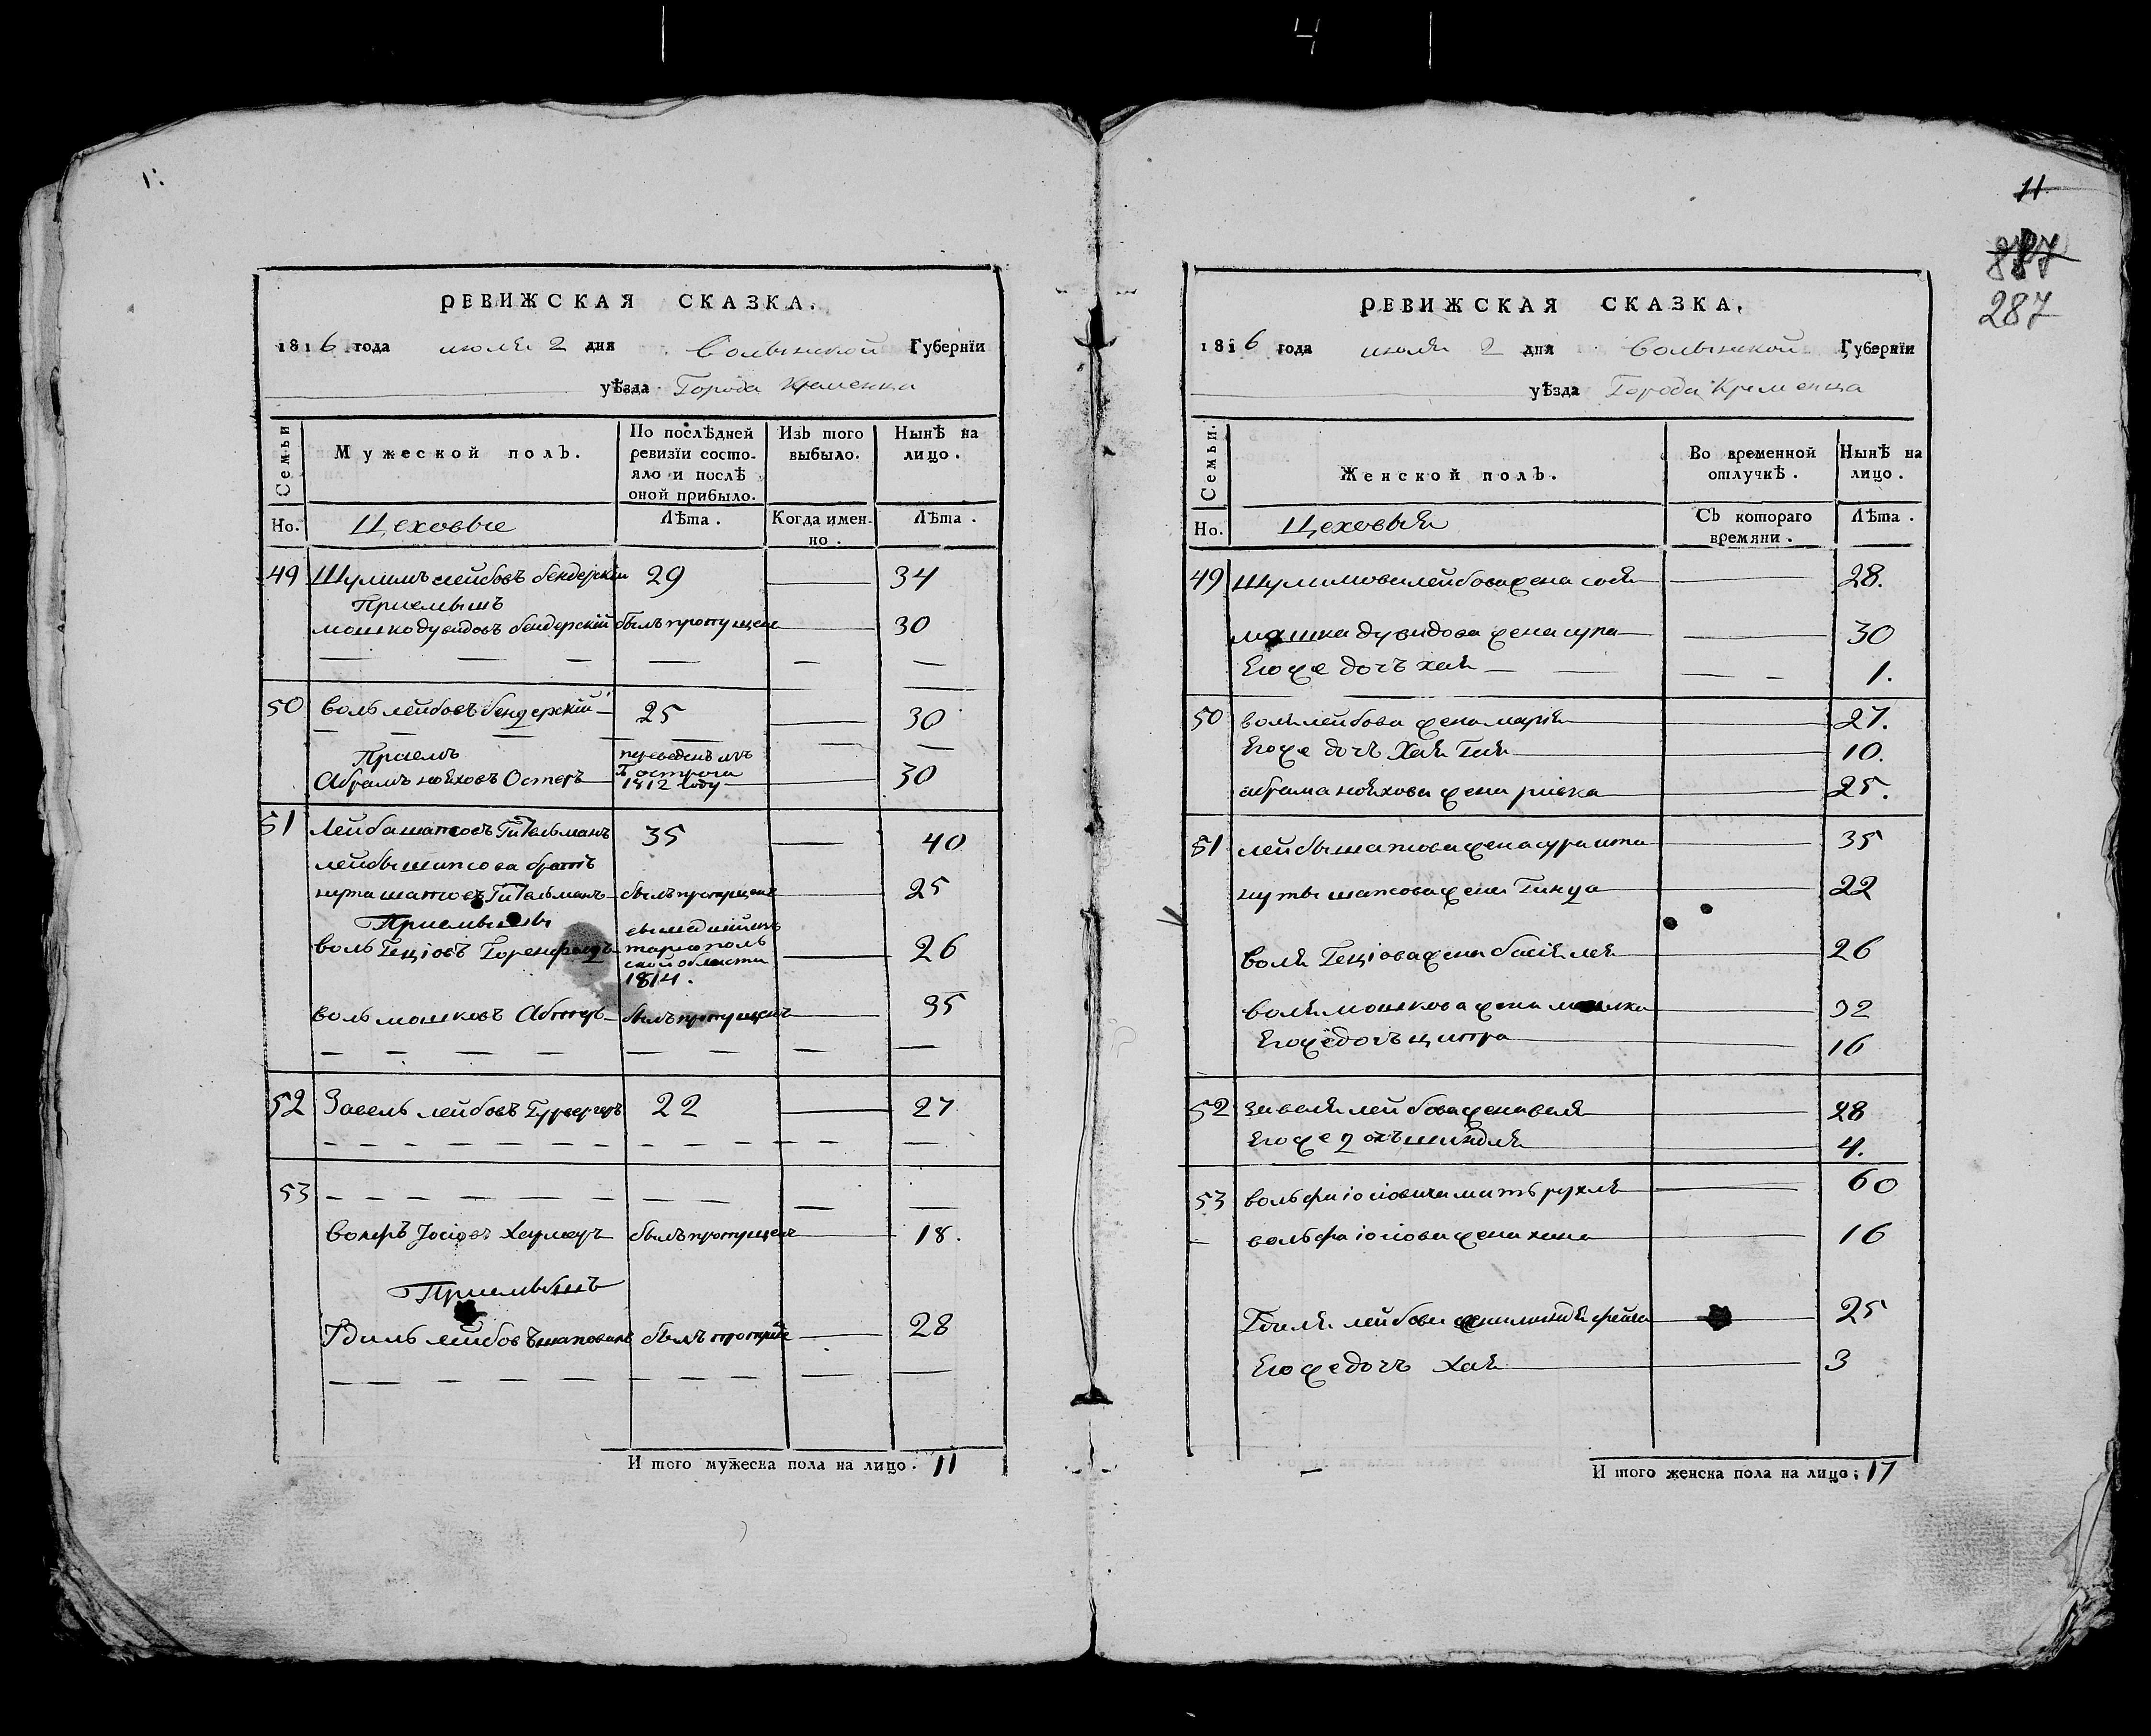 4
11
887
287
РЕВИЖСКАЯ СКАЗКА.
1816 года июля 2 дня Волынской Губернїи
уѣзда Города Кременца
Семьи
Мужеской полъ.
По послѣдней ревизїи состояло и послѣ оной прибыло.
Изъ того выбыло.
Нынѣ на лицо.
Но. Цеховые Лѣта. Когда именно. Лѣта.
49 Шулимъ лейбовъ бендерскiй 29 34
Приемышъ
мошко дувидовъ бендерскiй былъ пропущенъ 30
50 Воль лейбовъ бендерскiй 25 30
Приемъ
Абрамъ нойховъ Остеръ переведенъ изъ Г острога 1812 году 30
51 Лейба шапсовъ Гительманъ 35 40
лейбы шапсова братъ
нута шапсовъ Гительманъ былъ пропущенъ 25
Приемыши
воль Гецiовъ 1814. 26
воль мошковъ былъ пропущенъ 35
52 Завель лейбовъ 22 27
53
Волфъ Iосiовъ былъ пропущенъ 18.
Приемышъ
лейбовъ шаповалъ былъ 28
И того мужеска пола на лицо. 11
РЕВИЖСКАЯ СКАЗКА.
1816 года июля 2 дня Волынской Губернїи
уѣзда Города Кременца
Семьи.
Женской полъ.
Во временной отлучкѣ.
Нынѣ на лицо.
Но. Цеховыя Съ котораго времяни. Лѣта.
49 Шулимова лейбова жена сося 28.
мошка дувидова жена сура 30
Его же дочъ хая 1.
50 воля лейбова жена марiя 27.
Его же дочъ Хая 10.
абрама нойхова жена ривка 25.
51 лейбы шапсова жена сура ита 35
нуты шапсова жена 22
воля Гецiова жена басiя лея 26
воля мошкова жена 32
Его же дочъ ципра 16
52 завеля лейбова жена 28
Его же дочъ шиндля 4.
53 вольфа iосiовича мать рухля 60
вольфа iосiова жена хана 16
лейбова жена 25
Его же дочъ Хая 3
И того женска пола на лицо: 17